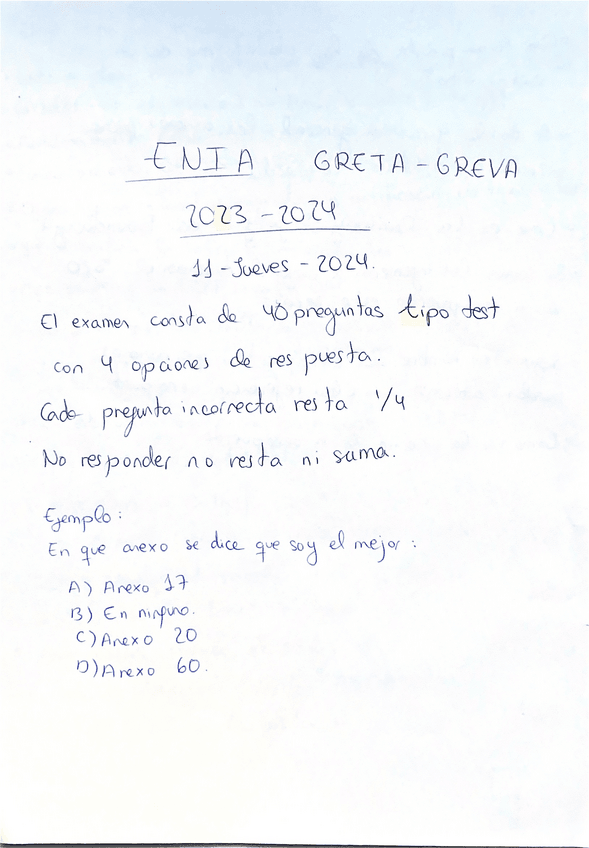 ENIA GRETA - GREVA
2023 - 2024
11 - Jueves - 2024.
El examen consta de 40 preguntas tipo test
con 4 opciones de respuesta.
Cada pregunta incorrecta resta 1/4
No responder no resta ni suma.
Ejemplo:
En que anexo se dice que soy el mejor:
A) Anexo 17
B) En ninguno.
C) Anexo 20
D) Anexo 60.